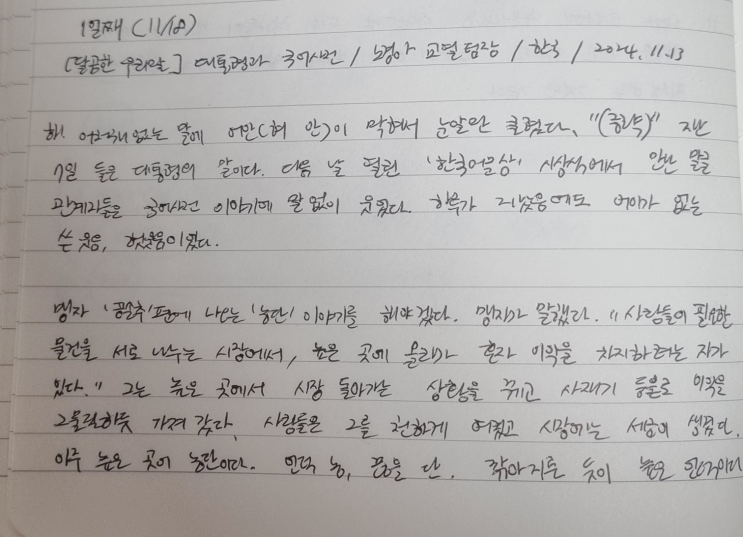 1일째 (11/18)
[달곰한 우리말] 대통령과 국어사전 / 노경아 교열팀장 / 한국 / 2024. 11.13
하! 어처구니 없는 말에 어안(혀 안)이 막혀서 눈알만 굴렸다. "(중략)" 지난
7일 들은 대통령의 말이다. 다음 날 열린 '한국어문상' 시상식에서 만난 말글
관계자들은 국어사전 이야기에 말 없이 웃었다. 하루가 지났음에도 어이가 없는
쓴 웃음, 헛웃음이었다.
맹자 '공손추'편에 나오는 '농단' 이야기를 해야겠다. 맹자가 말했다. "사람들이 필요한
물건을 서로 나누는 시장에서, 높은 곳에 올라가 혼자 이익을 차지하려는 자가
있다." 그는 높은 곳에서 시장 돌아가는 상황을 꿰고 사재기 등으로 이익을
그물질하듯 가져갔다. 사람들은 그를 천하게 여겼고 시장에는 세금이 생겼다.
아주 높은 곳이 농단이다. 언덕 농, 끊을 단. 깎아지른 듯이 높은 언덕이다